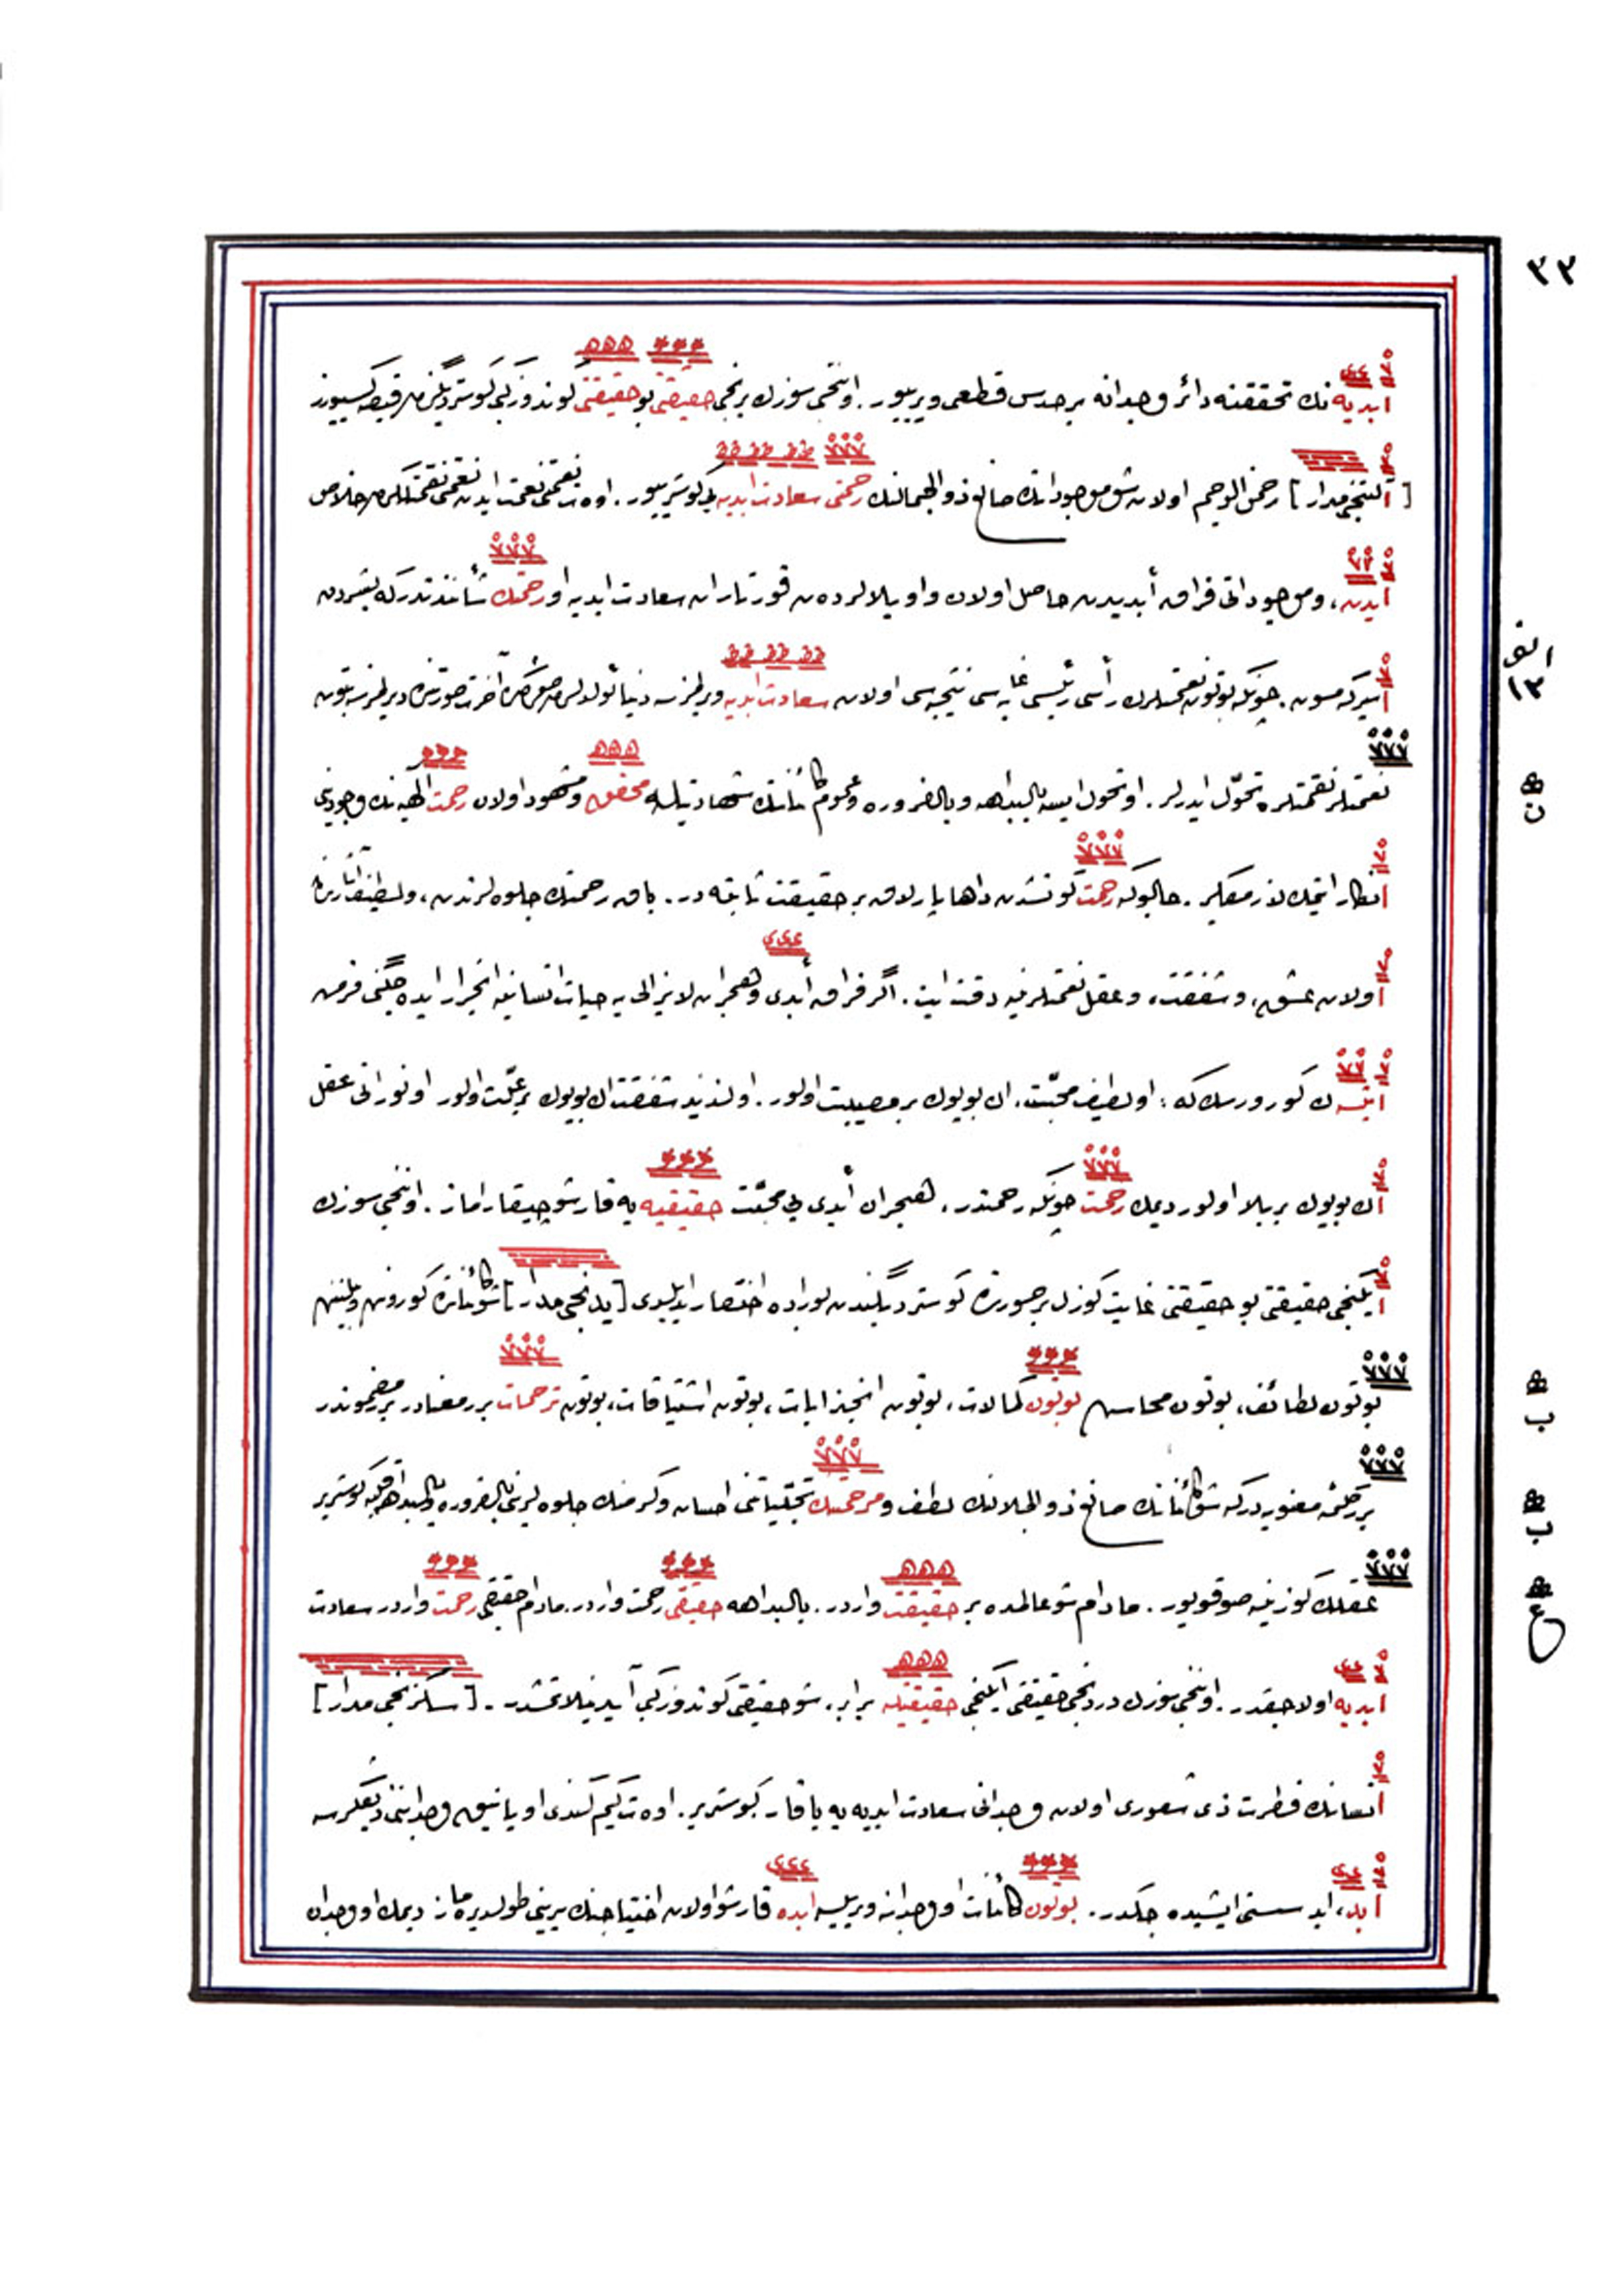 ٣٣
ابديه نك تحققنه دائر وجدانه بر حدس قطعى ويرييور. اوننجى سوزك برنجى حقيقتى بو حقيقتى كوندوز كبى كوسترديگندن قيصه كسييورز
[آلتنجى مدار] رحمن الرحيم اولان شو موجوداتك صانع ذو الجمالنك رحمتى سعادت ابديه يى كوسترييور. اوت نعمتى نعمت ايدن نعمتى نقمتلكدن خلاص
ايدن، و موجوداتى فراق أبديدن حاصل اولان واويلالردن قورتاران سعادت ابديه او رحمتك شأنندندركه بشردن
اسيركه مسون. چونكه بوتون نعمتلرك رأسى رئيسى غايه سى نتيجه سى اولان سعادت ابديه ويرلمزسه دنيا ئولدكدن صوكره آخرت صورتنده ديريلمزسه بوتون
نعمتلر نقمتلره تحوّل ايدرلر. او تحول ايسه بالبداهه و بالضروره و عموم كائناتك شهادتيله محقق و مشهود اولان رحمت الٓهيه نك وجودينى
انكار ايتمك لازمكلير. حالبوكه رحمت كونشدن داها پارلاق بر حقيقت ثابته در. باق رحمتك جلوه لرندن، و لطيف آثارندن
اولان عشق، و شفقت، و عقل نعمتلرينه دقت ايت. اگر فراق أبدى و هجران لايزالى يه حيات انسانيه انجرار ايده جگنى فرض
ايتسه ك كورورسك كه: او لطيف محبّت، اڭ بويوك بر مصيبت اولور. او لذيذ شفقت اڭ بويوك بر علّت اولور او نورانى عقل
اڭ بويوك بر بلا اولور ديمك رحمت چونكه رحمتدر، هجران أبدى يى محبّت حقيقيه يه قارشو چيقاراماز. اوننجى سوزك
ايكنجى حقيقتى بو حقيقتى غايت كوزل بر صورتده كوسترديگندن بوراده اختصار ايديلدى [يدنجى مدار] شو كائناتده كورونن و بيلنن
بوتون لطائف، بوتون محاسن بوتون كمالات، بوتون انجذابات، بوتون اشتياقات، بوتون ترحمات برر معنادر برر مضموندر
برر كلمۀ معنويه در كه شو كائناتك صانع ذو الجلالنك لطف و مرحمتك تجلّياتنى احسان و كرمنك جلوه لرينى بالضروره و بالبداهه قلبه كوسترير
عقلك كوزينه صوقويور. مادام شو عالمده بر حقيقت واردر. بالبداهه حقيقى رحمت واردر. مادام حقيقى رحمت واردر سعادت
ابديه اولاجقدر. اوننجى سوزك دردنجى حقيقتى ايكنجى حقيقتيله برابر. شو حقيقتى كوندوز كبى آيدينلاتمشدر. [سكزنجى مدار]
انسانك فطرت ذى شعورى اولان وجدانى سعادت ابديه يه باقار كوسترير. اوت كيم كندى اويانيق وجداننى ديڭلرسه
ابد، ابد سسنى ايشيده جكدر. بوتون كائنات او وجدانه ويريلسه ابده قارشو اولان احتياجنك يرينى طولديره ماز ديمك او وجدان